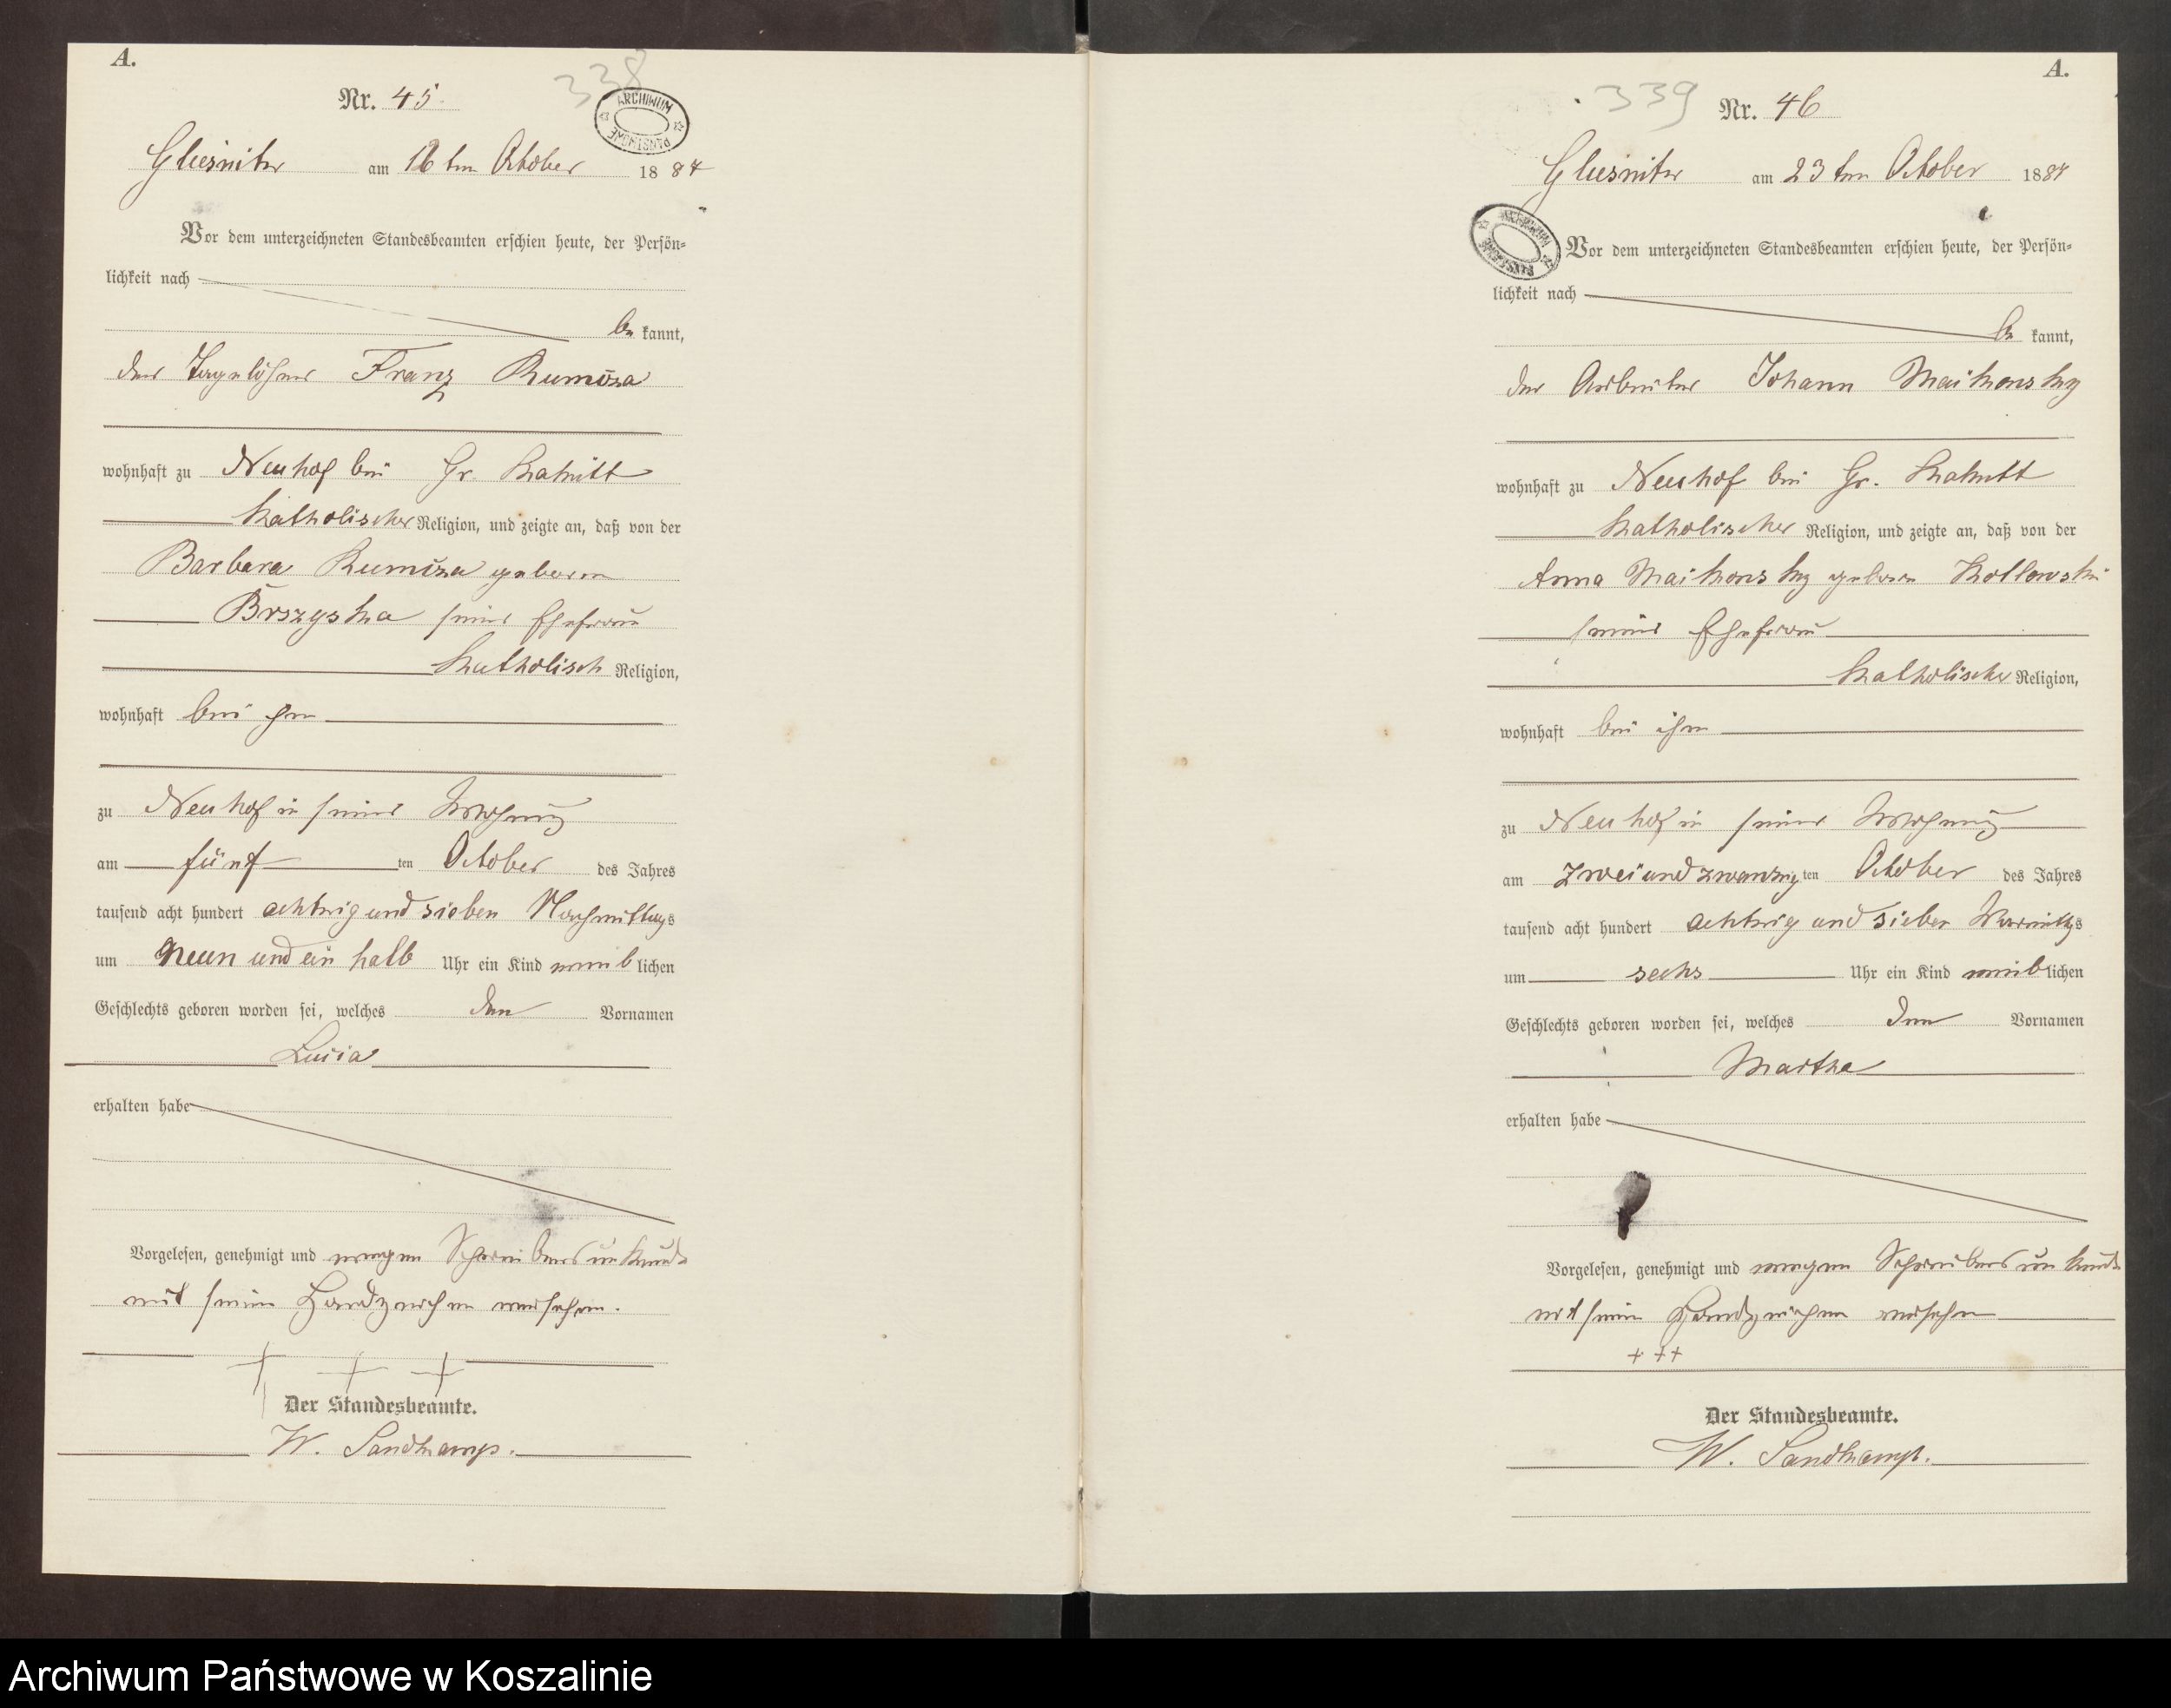 A.
338
Nr. 45.
ARCHIWUM PAŃSTWOWE
am 16 ten October 1887
Vor dem unterzeichneten Standesbeamten erschien heute, der Persön=
lichkeit nach
be kannt,
der Tagelöhner Franz
wohnhaft zu Neuhof bei Gr. Katzitt
Katholischer Religion, und zeigte an, daß von der
Barbara geboren
seiner Ehefrau
Katholisch Religion,
wohnhaft bei ihm
zu Neuhof in seiner Wohnung
am fünf ten October des Jahres
tausend acht hundert achtzig und sieben Nachmittags
um neun und ein halb Uhr ein Kind weiblichen
Geschlechts geboren worden sei, welches den Vornamen
Lucia
erhalten habe
Vorgelesen, genehmigt und wegen Schreibensunkunde
mit seinem Handzeichen versehen.
+ + +
Der Standesbeamte.
W. Sandkamp.
A.
339
Nr. 46
am 23 ten October 1887
ARCHIWUM PAŃSTWOWE
Vor dem unterzeichneten Standesbeamten erschien heute, der Persön=
lichkeit nach
be kannt,
der Arbeiter Johann
wohnhaft zu Neuhof bei Gr. Katzitt
Katholischer Religion, und zeigte an, daß von der
Anna geboren
seiner Ehefrau
Katholischer Religion,
wohnhaft bei ihm
zu Neuhof in seiner Wohnung
am zwei und zwanzig ten October des Jahres
tausend acht hundert achtzig und sieben Vormittags
um sechs Uhr ein Kind weiblichen
Geschlechts geboren worden sei, welches den Vornamen
Martha
erhalten habe
Vorgelesen, genehmigt und wegen Schreibensunkunde
mit seinem Handzeichen versehen
+ + +
Der Standesbeamte.
W. Sandkamp.
Archiwum Państwowe w Koszalinie